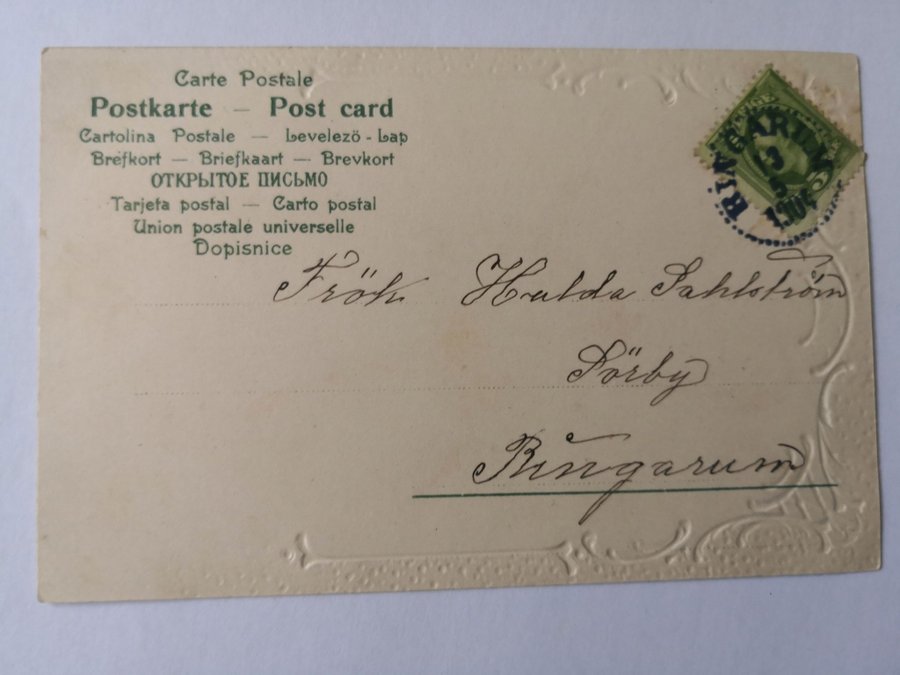 Carte Postale
Postkarte — Post card
Cartolina Postale — Levelező-Lap
Brefkort — Briefkaart — Brevkort
ОТКРЫТОЕ ПИСЬМО
Tarjeta postal — Carto postal
Union postale universelle
Dopisnice
RINGARUM
3
5
1904
Frök Hulda Sahlström
Sörby
Ringarum